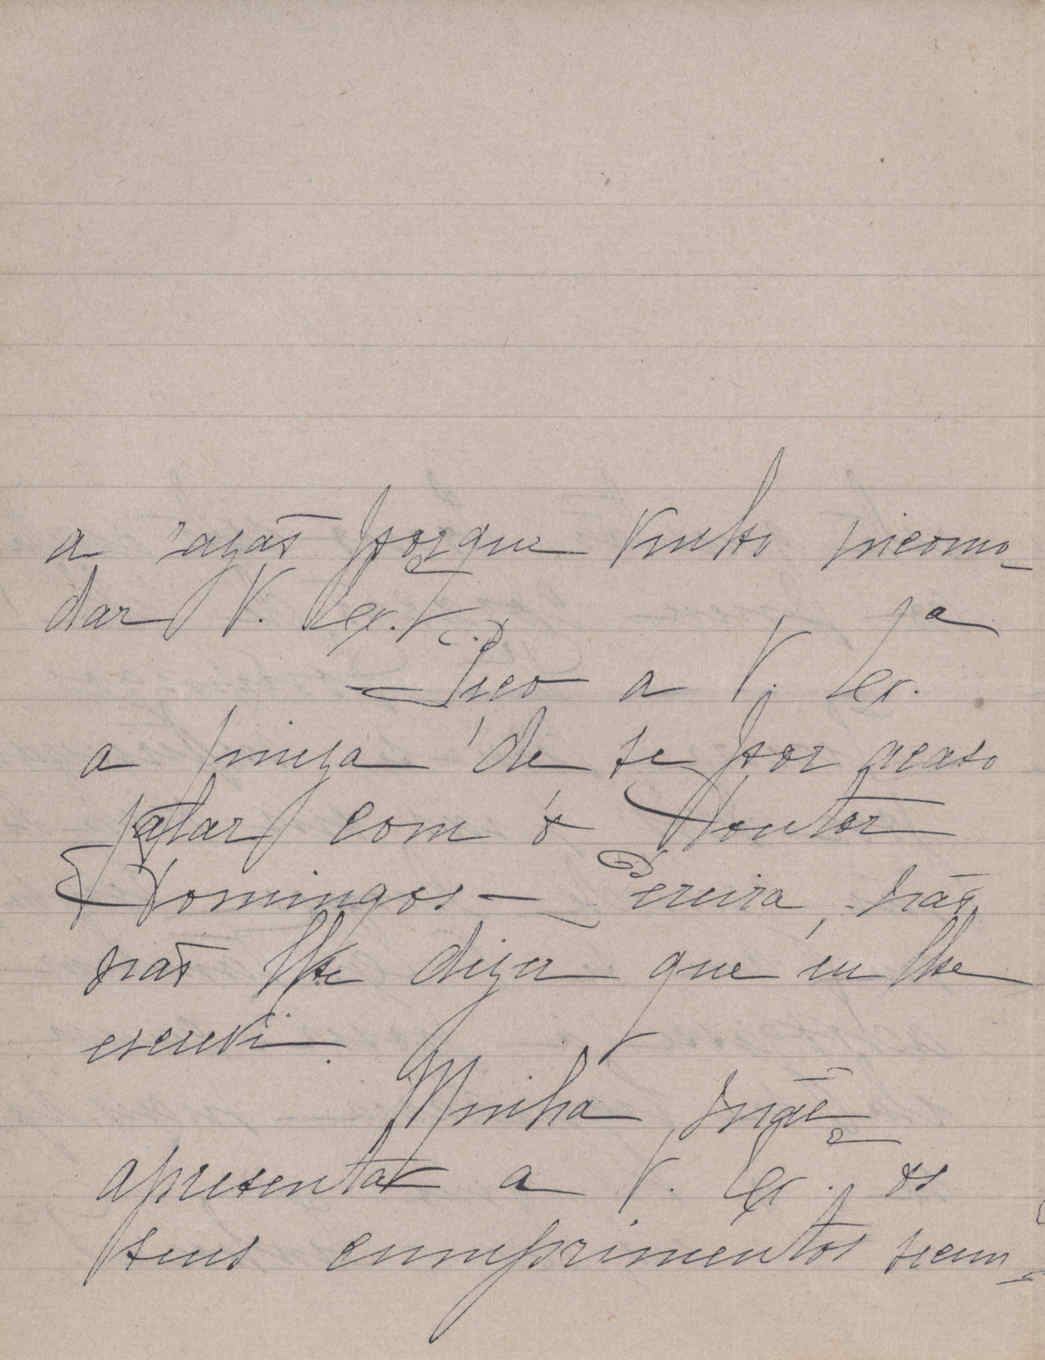 a razão porque venho incomo-
dar V. Ex.ª
Peço a V. Ex.ª
a fineza de se por acaso
falar com o Doutor
Domingos Pereira, não
não lhe dizer que eu lhe
escrevi.
Minha mãe
apresentar a V. Ex.ª os
seus cumprimentos